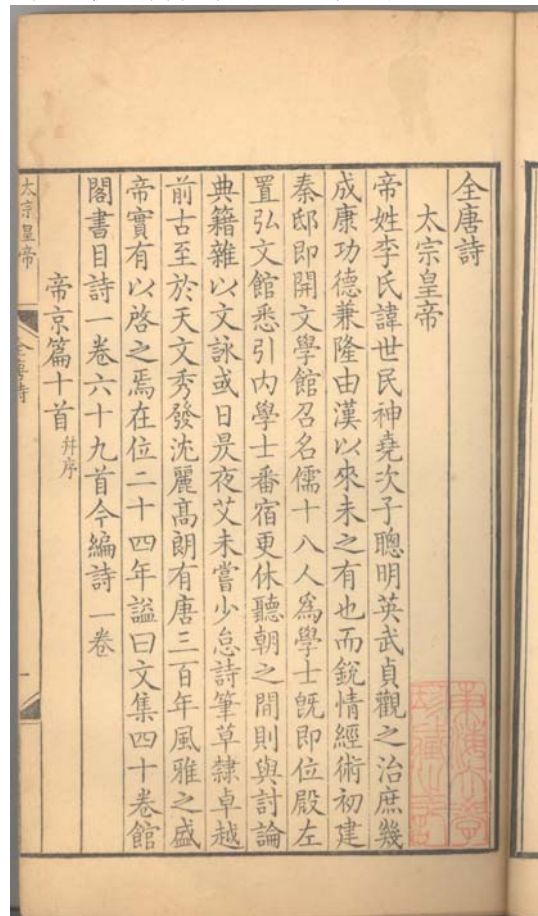 全唐詩
太宗皇帝
帝姓李氏諱世民神堯次子聰明英武貞觀之治庶幾
成康功德兼隆由漢以來未之有也而銳情經術初建
秦邸即開文學館召名儒十八人為學士既即位殿左
置弘文館悉引內學士番宿更休聽朝之間則與討論
典籍雜以文詠或日昃夜艾未嘗少怠詩筆草隸卓越
前古至於天文秀發沈麗高朗有唐三百年風雅之盛
帝實有以啓之焉在位二十四年謚曰文集四十卷館
閣書目詩一卷六十九首今編詩一卷
帝京篇十首 幷序
太宗皇帝
全唐詩
一